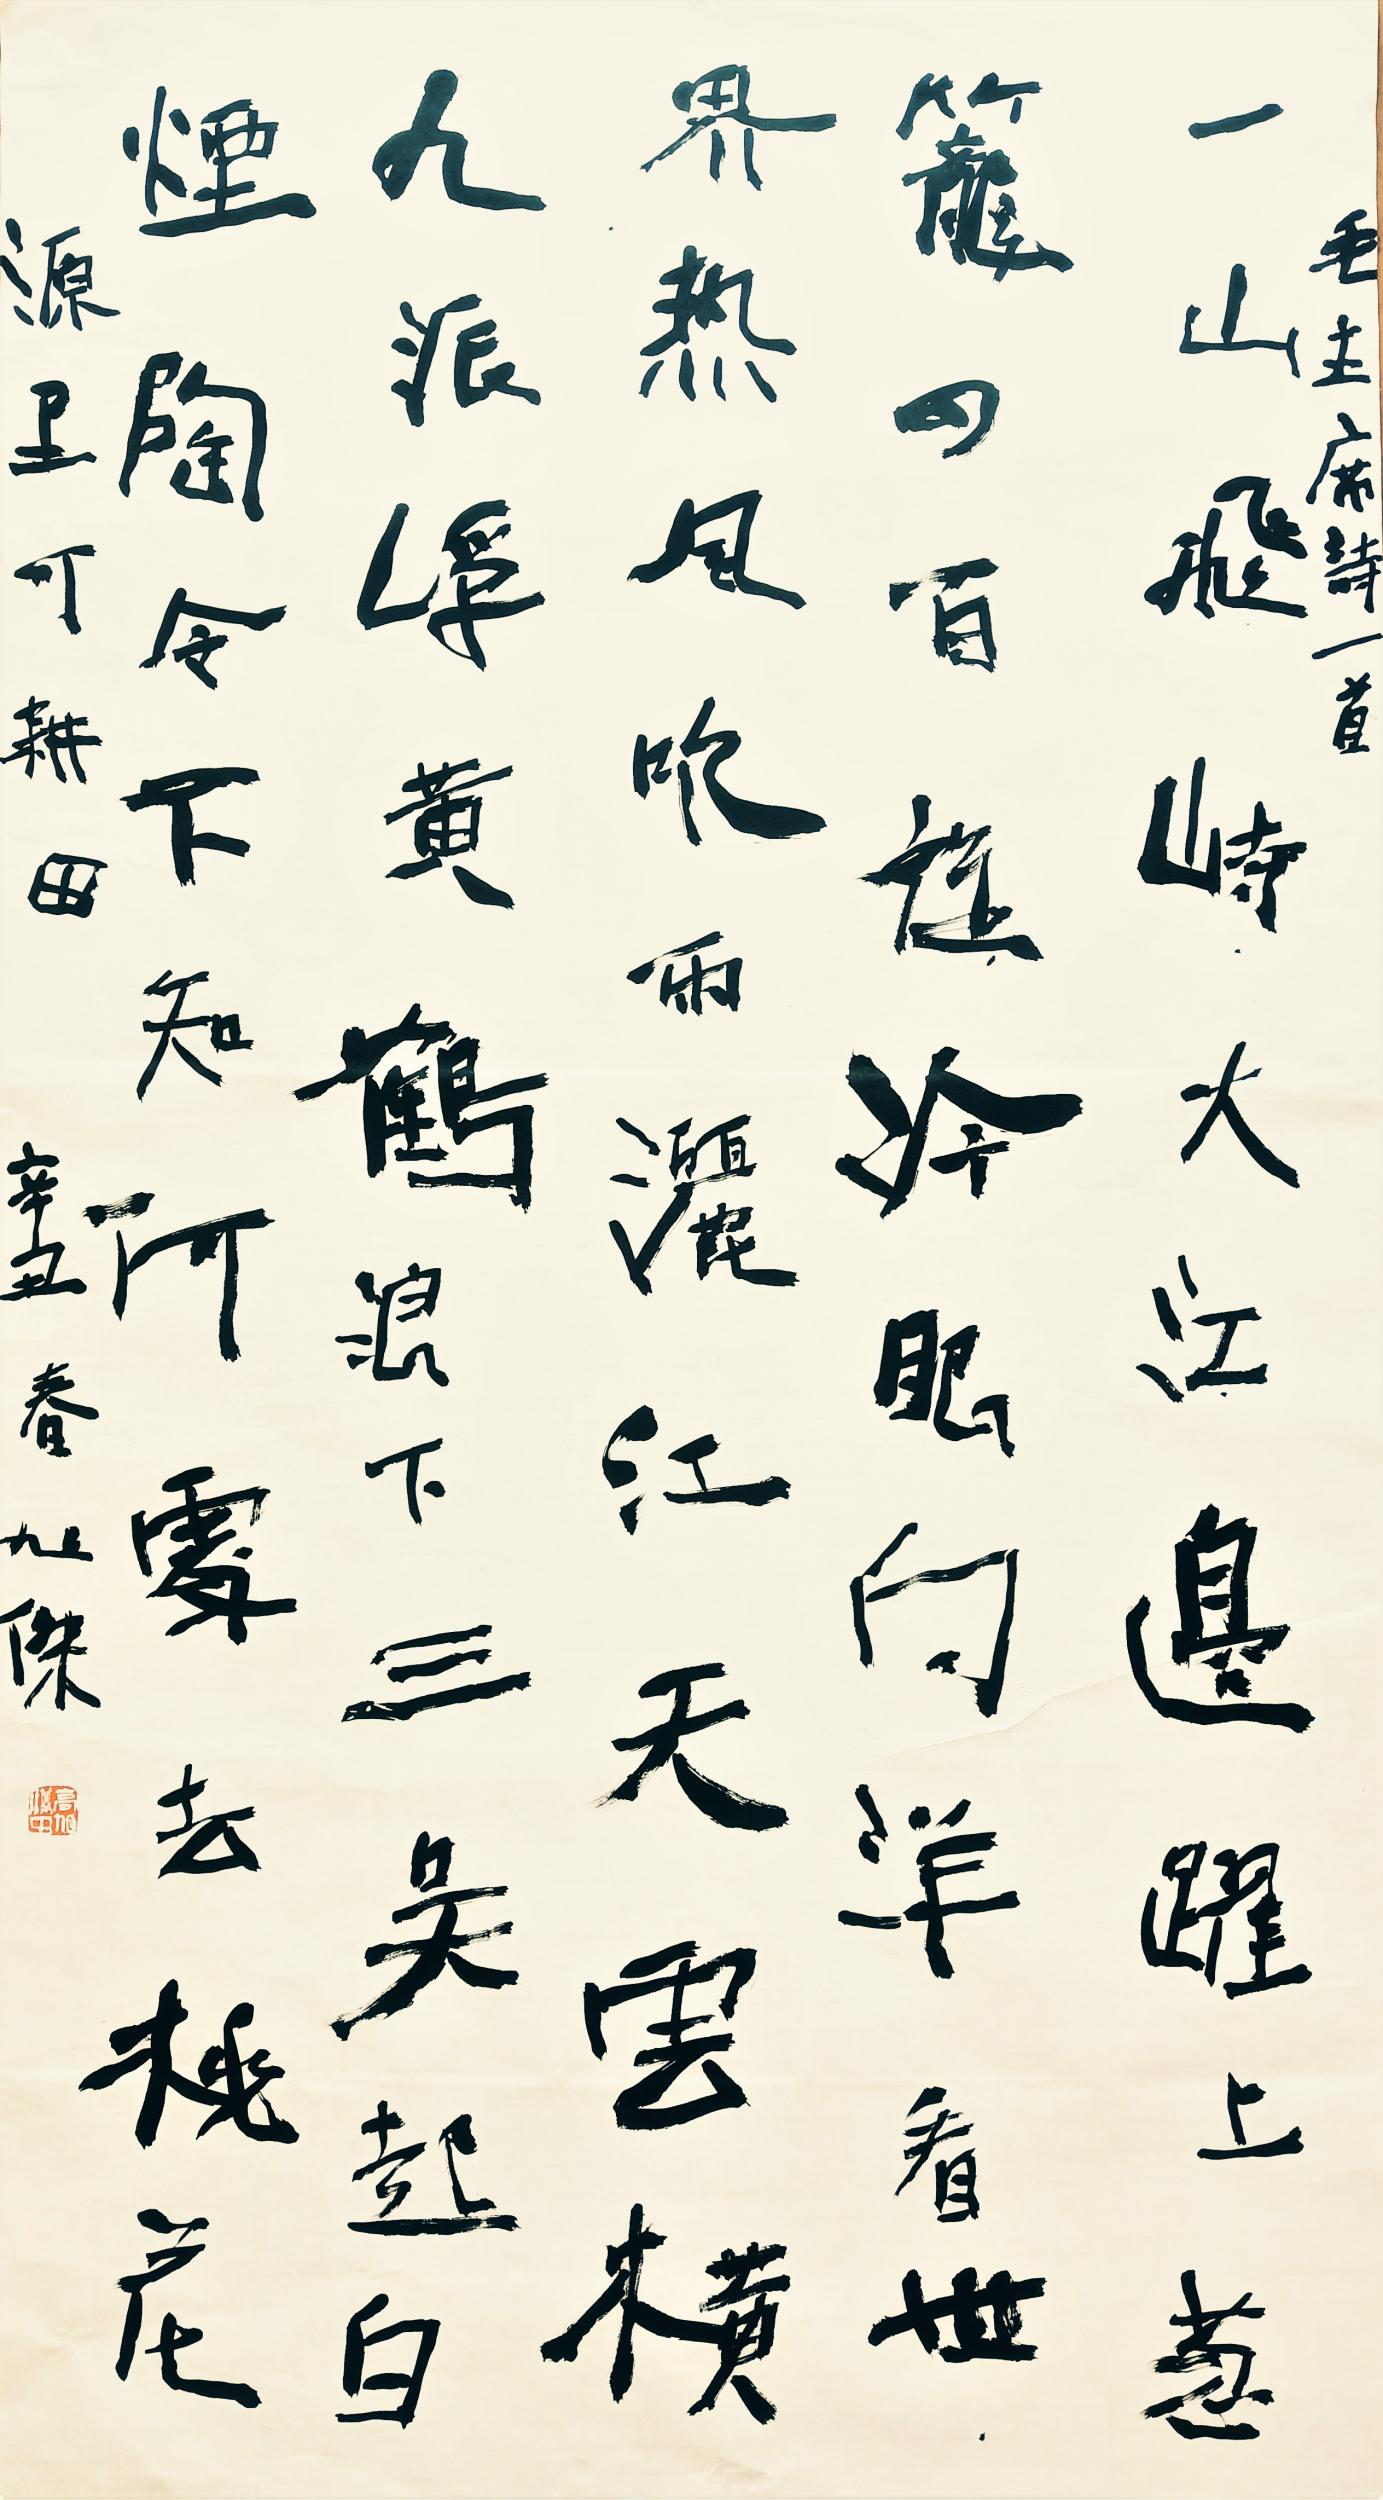 毛主席詩一首
一山飛峙大江邊躍上葱
籠四百旋冷眼向洋看世
界熱風吹雨灑江天雲橫
九派浮黃鶴浪下三吳起白
煙陶令不知何處去桃花
源里可耕田 辛丑春 旭傑